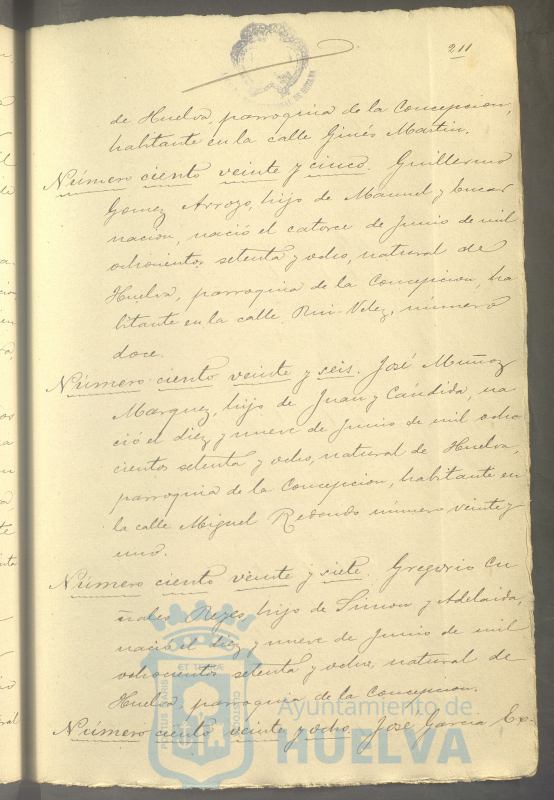 211
de Huelva, parroquia de la Concepcion,
habitante en la calle Ginés Martin.
Número ciento veinte y cinco. Guillermo
Gomez Arroyo, hijo de Manuel y Encar
nacion, nació el catorce de Junio de mil
ochocientos setenta y ocho, natural de
Huelva, parroquia de la Concepcion, ha
bitante en la calle Rui-Velez, número
doce.
Número ciento veinte y seis. José Muñoz
Marquez, hijo de Juan y Cándida, na
ció el diez y nueve de Junio de mil ocho
cientos setenta y ocho, natural de Huelva,
parroquia de la Concepcion, habitante en
la calle Miguel Redondo número veinte y
uno.
Número ciento veinte y siete. Gregorio
Reyes, hijo de Simon y Adelaida,
nació el diez y nueve de Junio de mil
ochocientos setenta y ocho, natural de
Huelva, parroquia de la Concepcion.
Número ciento veinte y ocho. José Garcia
Ayuntamiento de
HUELVA